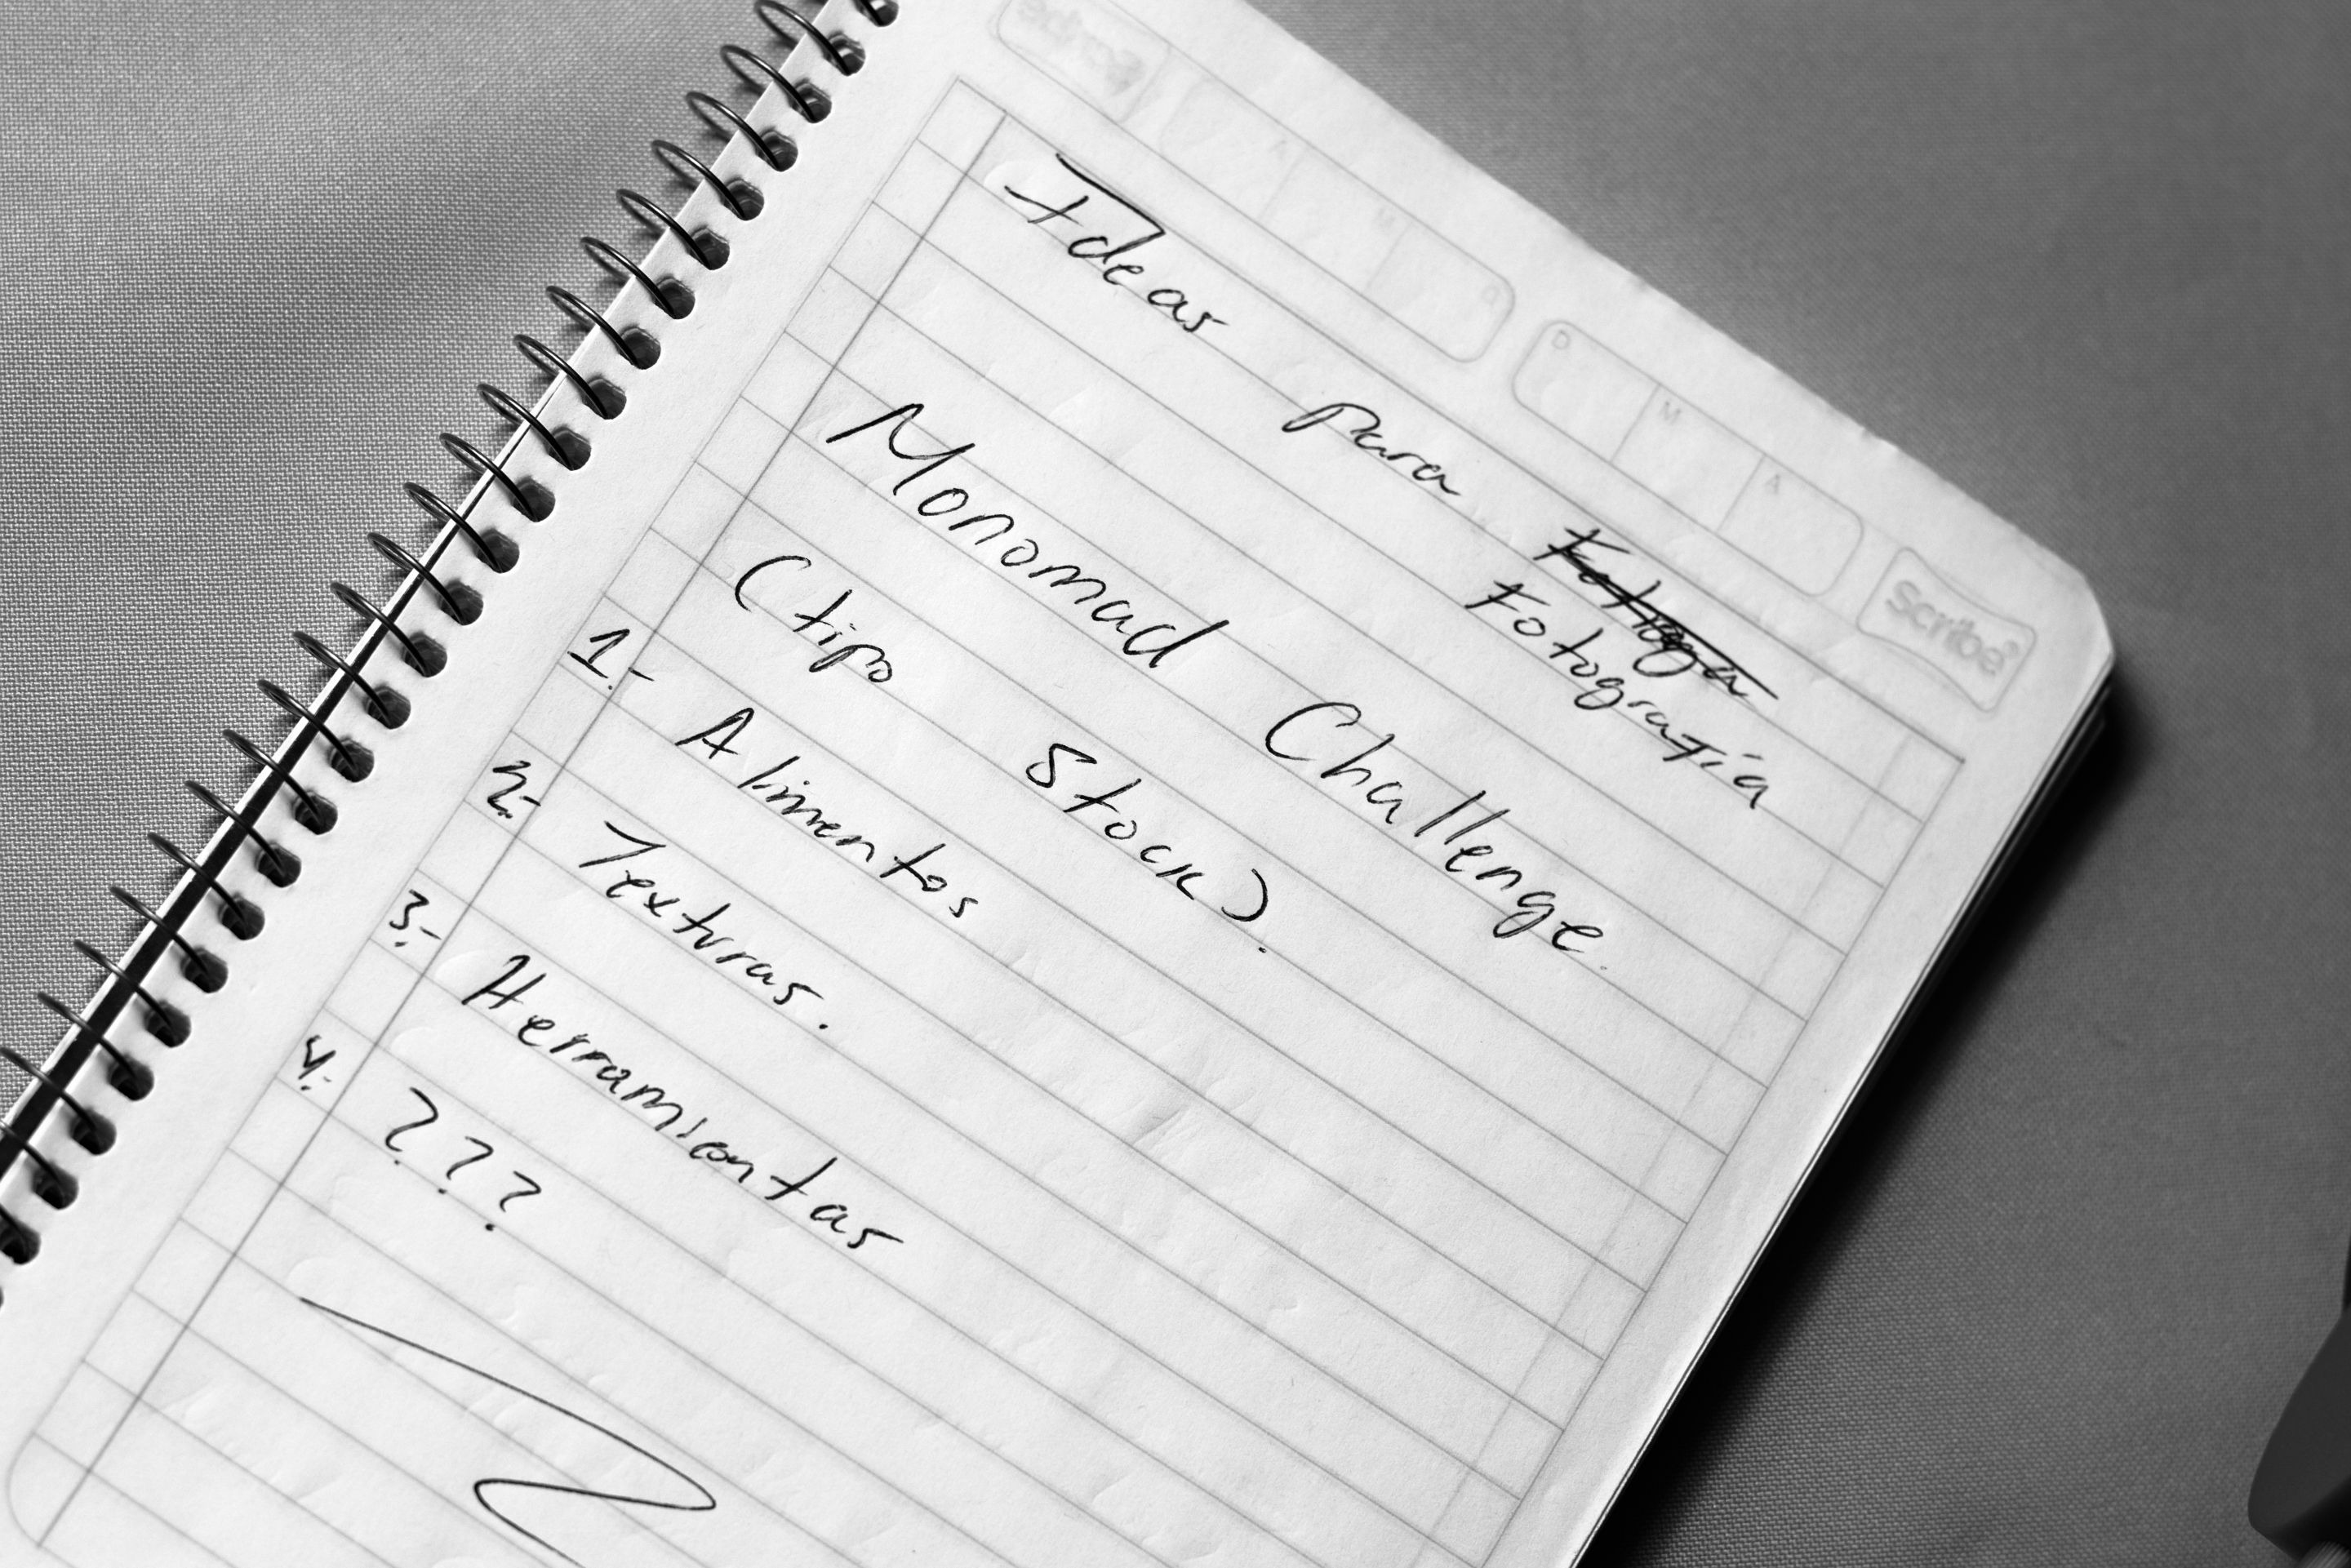 Scribe
D M A
D M A
Scribe®
Ideas para Fotoga
Fotografía
Monomad Challenge.
(tipo Stock).
1.- Alimentos
2.- Texturas.
3.- Herramientas
4.- ???